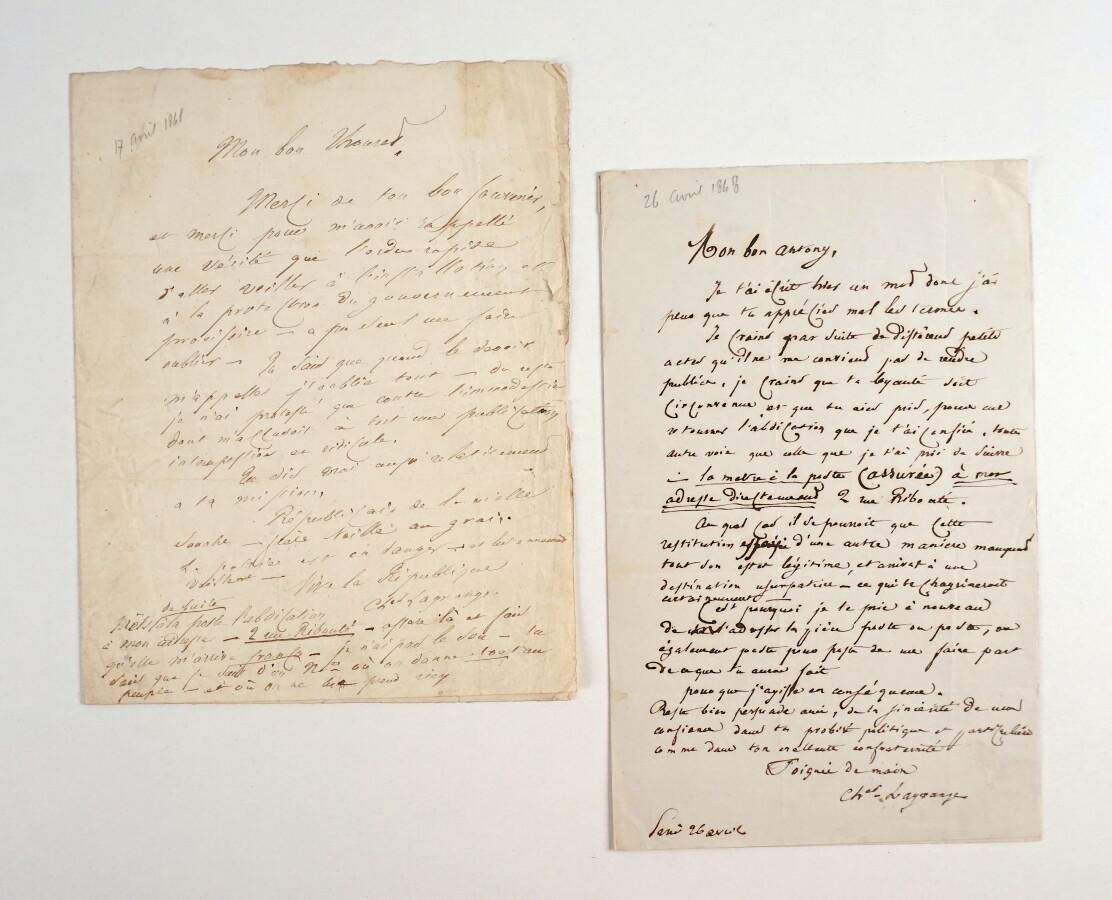 17 avril 1868
Mon bon Thouret,
Merci de ton bon souvenir,
et merci pour m'avoir rappellé
une vérité que l'ordre rapide
d'aller veiller à l'installation et
à la protection du gouvernement
provisoire – a pu seul me faire
oublier – Tu sais que quand le devoir
m'appelle j'oublie tout – du reste
je n'ai protesté que contre l'immodestie
dont m'accusoit à tort une publication
intempestive et ridicule.
Tu dis vrai aussi relativement
à ta mission,
Républicain de la vieille
souche – sois taillé au grain.
La patrie est en danger – et les ennemis
veillent – Vive la République
Chles Lagrange
de suite
mets à la poste l'abdication
à mon adresse – 2 rue Ribouté – affaire là et fais
qu'elle m'arrive franco – je n'ai pas le sou – tu
sais que je suis d'où on donne tout au
peuple – et où on ne lui prend rien
26 avril 1868
Mon bon antony,
Je t'ai écrit hier un mot dont j'ai
peur que tu apprécies mal les termes.
Je crains par suite de différens petits
actes qu'il ne me convient pas de rendre
publics, je crains que ta loyauté soit
circonvenue et que tu aies pris, pour me
retourner l'abdication que je t'ai confiée, toute
autre voie que celle que je t'ai prié de suivre
– la mettre à la poste (assurée) à mon
adresse directement 2 rue Ribouté.
Au quel cas il se pourroit que cette
restitution d'une autre manière manquant
tout son effet légitime, et arrivât à une
destination usurpatrice – ce qui te chagrineroit
certainement –
C'est pourquoi je te prie à nouveau
de m'adresser la pièce poste ou poste, ou
également poste pour poste de me faire part
de ce que tu auras fait
pour que j'agisse en conséquence.
Reste bien persuadé ami, de la sincérité de ma
confiance dans ta probité politique et particulière
comme dans ton excellente confraternité
Poignée de main
Chles Lagrange
Paris 26 avril